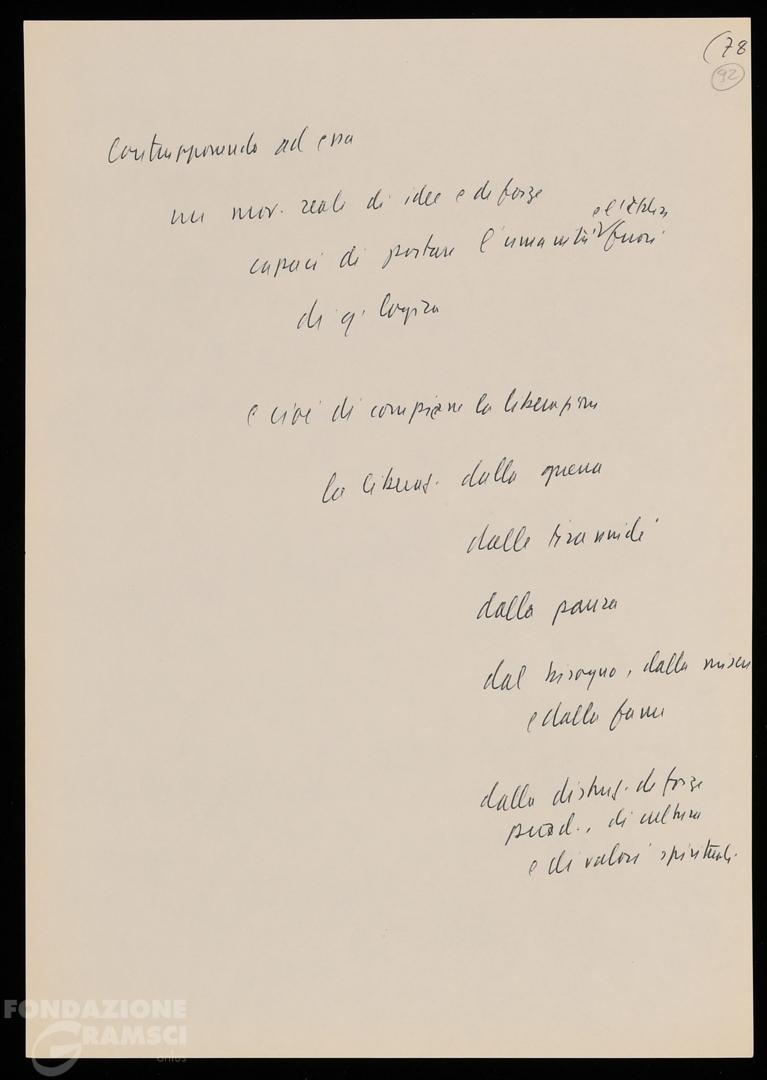 (78
92
Contrapponendo ad essa
un mov. reale di idee e di forze
e l'Italia
capaci di portare l'umanità fuori
di q. logica
e cioè di compiere la liberazione
la liberaz. dalla guerra
dalle tirannidi
dalla paura
dal bisogno, dalla miseria
e dalla fame
dalla distruz. di forze
prod., di cultura
e di valori spirituali.
FONDAZIONE
GRAMSCI
onlus